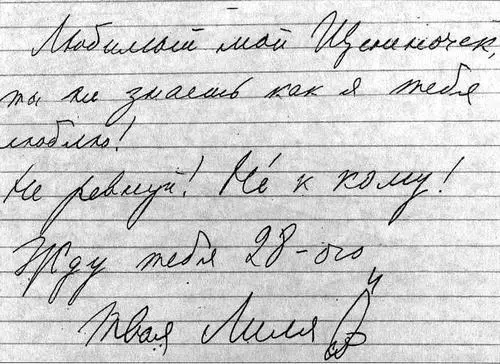 Любимый мой Щениночек,
ты не знаешь как я тебя
люблю!
Не ревнуй! Не́ к кому!
Жду тебя 28-ого
Твоя Лиля